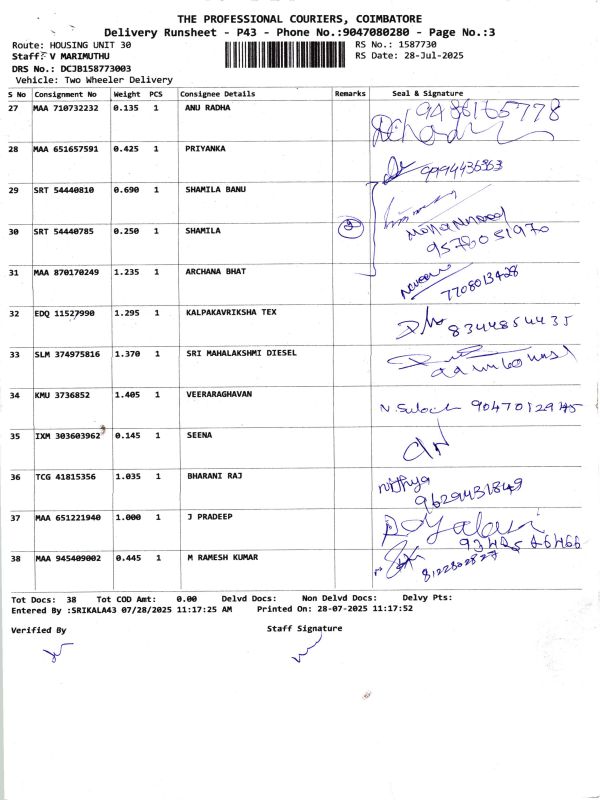 THE PROFESSIONAL COURIERS, COIMBATORE
Delivery Runsheet - P43 - Phone No.:9047080280 - Page No.:3
Route: HOUSING UNIT 30 RS No.: 1587730
Staff: V MARIMUTHU RS Date: 28-Jul-2025
DRS No.: DCJB158773003
Vehicle: Two Wheeler Delivery
S No Consignment No Weight PCS Consignee Details Remarks Seal & Signature
27 MAA 710732232 0.135 1 ANU RADHA 9486165778
28 MAA 651657591 0.425 1 PRIYANKA 9994436363
29 SRT 54440810 0.690 1 SHAMILA BANU
30 SRT 54440785 0.250 1 SHAMILA 2 Mohammed
9578051970
31 MAA 870170249 1.235 1 ARCHANA BHAT
7708013428
32 EDQ 11527990 1.295 1 KALPAKAVRIKSHA TEX 8344854435
33 SLM 374975816 1.370 1 SRI MAHALAKSHMI DIESEL
34 KMU 3736852 1.405 1 VEERARAGHAVAN 9047012945
35 IXM 303603962 0.145 1 SEENA
36 TCG 41815356 1.035 1 BHARANI RAJ nithya
9629431849
37 MAA 651221940 1.000 1 J PRADEEP
38 MAA 945409002 0.445 1 M RAMESH KUMAR 8122802827
Tot Docs: 38 Tot COD Amt: 0.00 Delvd Docs: Non Delvd Docs: Delvy Pts:
Entered By :SRIKALA43 07/28/2025 11:17:25 AM Printed On: 28-07-2025 11:17:52
Verified By Staff Signature